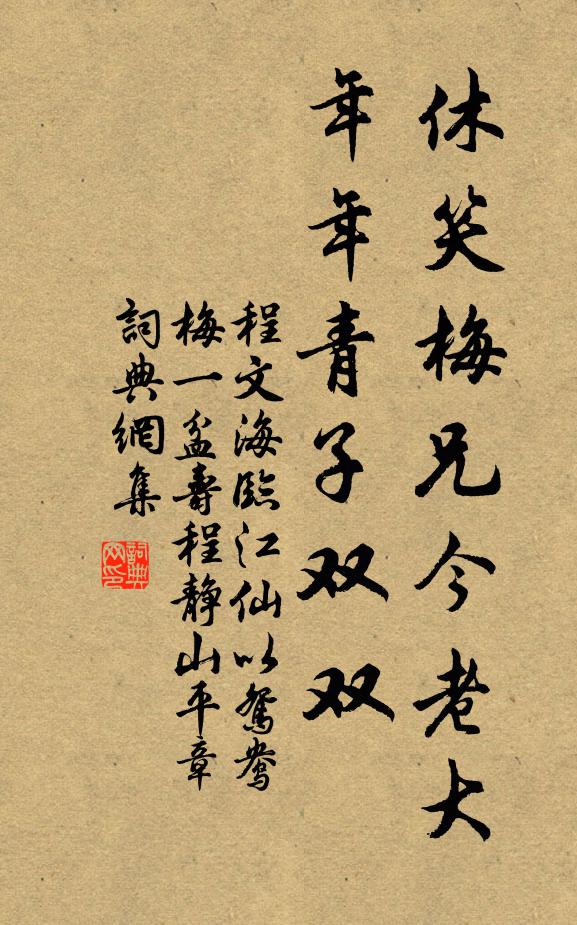 休笑梅兄今老大
年年青子双双
程文海臨江仙以鴛鴦
梅一盆壽程靜山平章
詞典網集
詞典网印